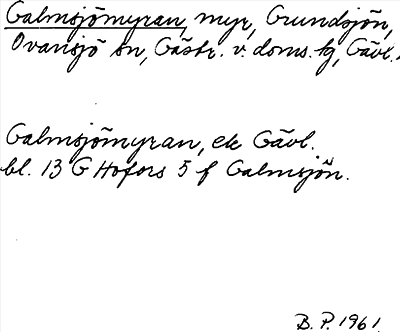 Galmsjömyran, myr, Grundsjön,
Ovansjö sn, Gästr. v. doms. tg, Gävl.
Galmsjömyran, ek Gävl.
bl. 13 G Hofors 5 f Galmsjön.
B. P. 1961